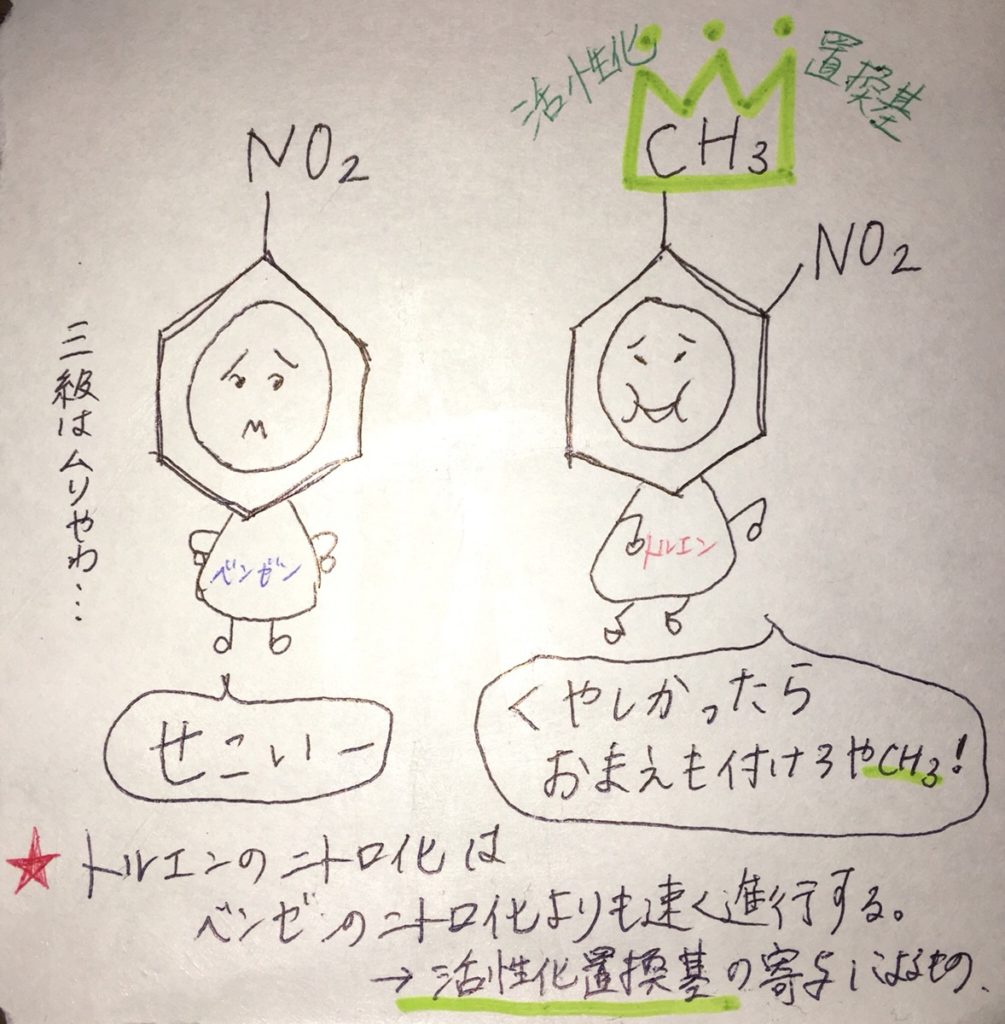 活性化
置換基
CH3
NO2
NO2
三級はムリやわ…
ベンゼン
トルエン
せこいー
くやしかったら
おまえも付けろやCH3!
★トルエンのニトロ化は
ベンゼのニトロ化よりも速く進行する。
→活性化置換基の寄与によるもの.